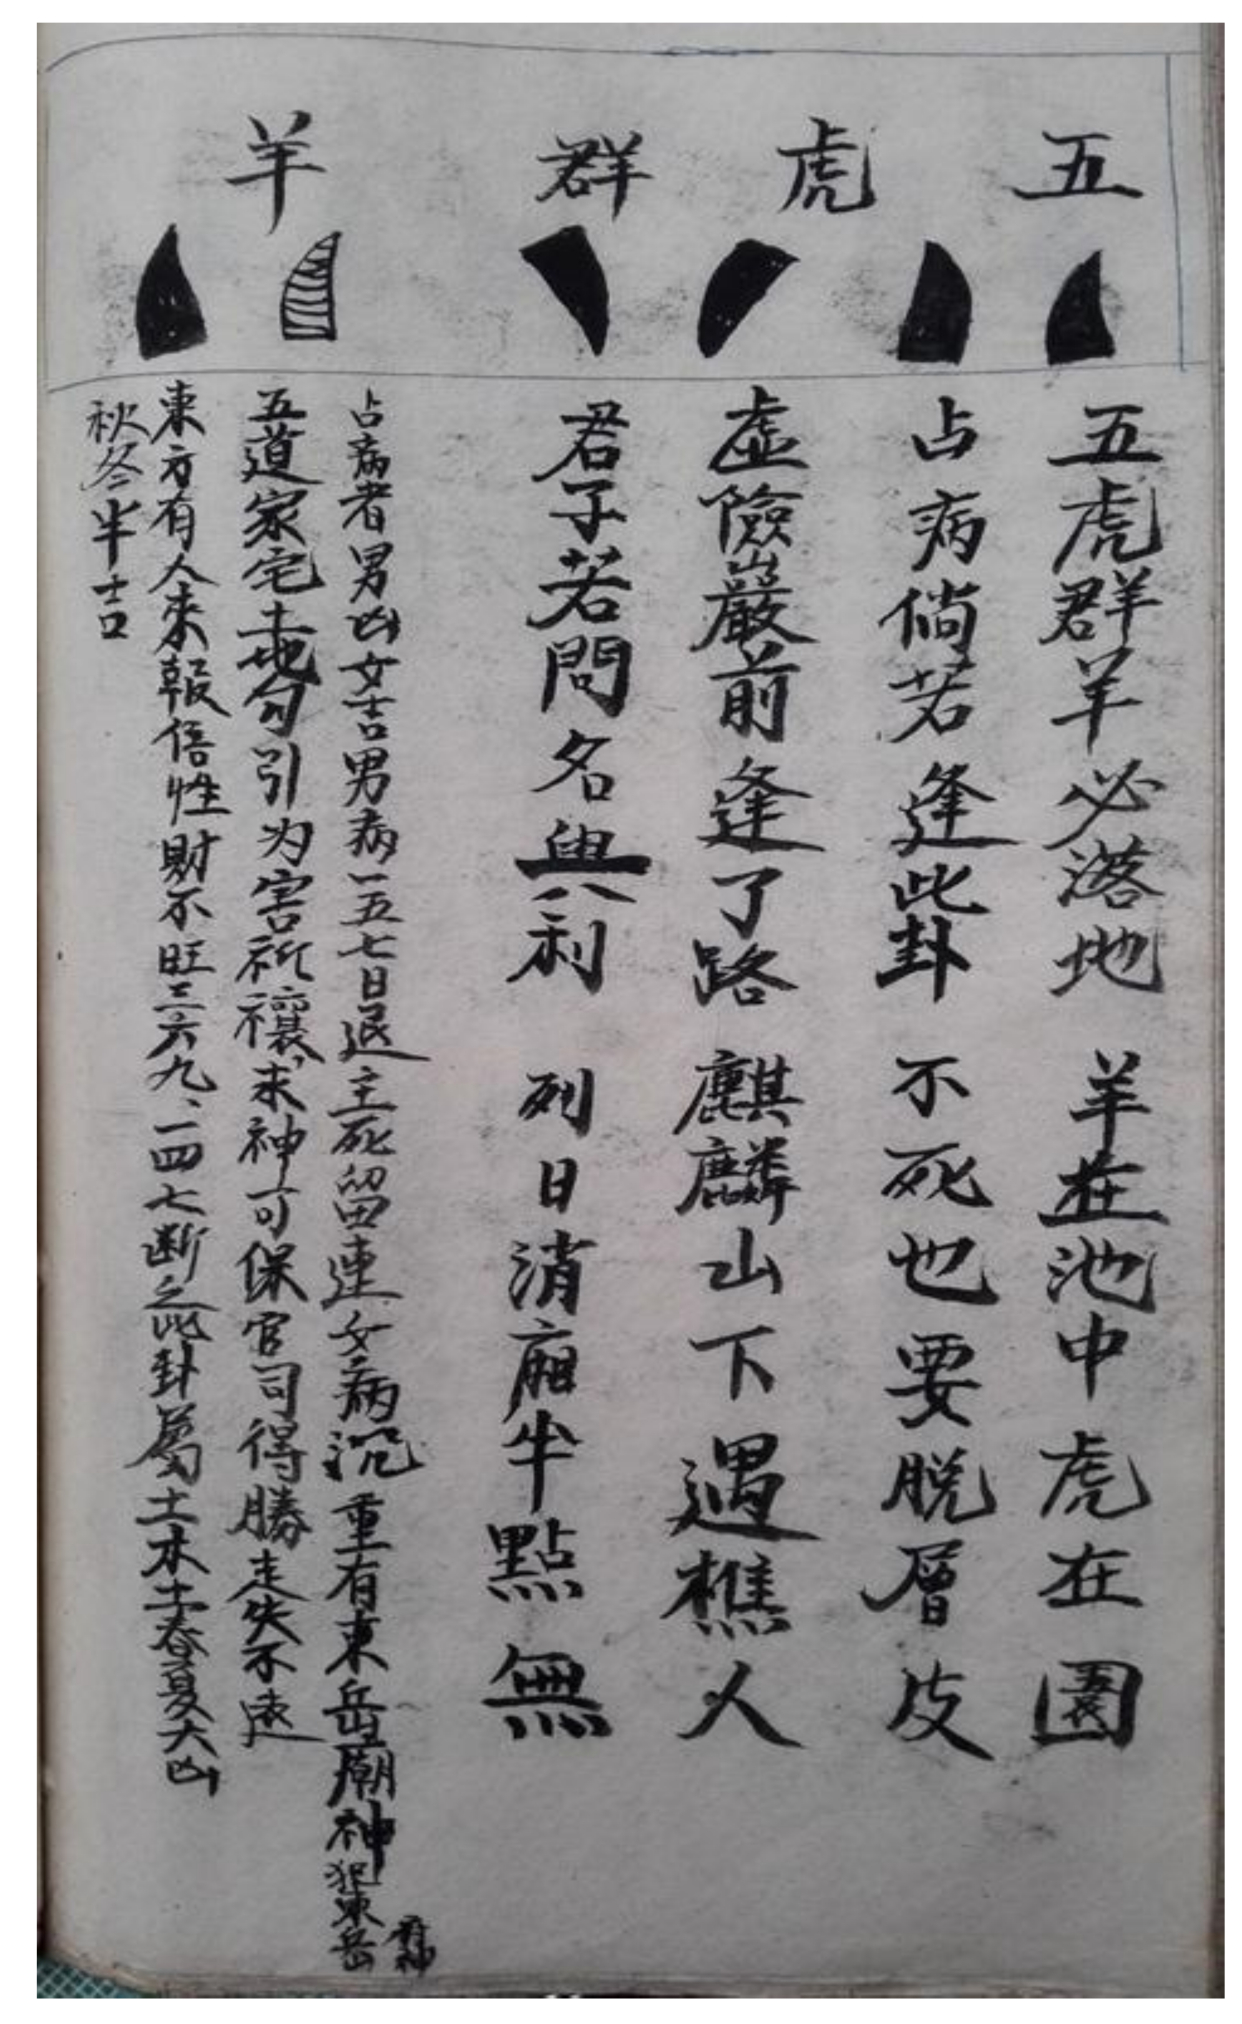 五虎群羊
五虎群羊必落地 羊在池中虎在園
占病倘若逢此卦 不死也要脱層皮
虛險巖前逢了路 麒麟山下遇樵人
君子若問名與利 列日消廂半點無
占病者男凶女吉男病一五七日退主死留連女病沉重有東岳廟神犯東岳
五道家宅土地勾引为害祈禳求神可保官司得勝走失不遠
東方有人來報信性財不旺三六九、一四七断之此卦屬土木土春夏大凶
秋冬半吉